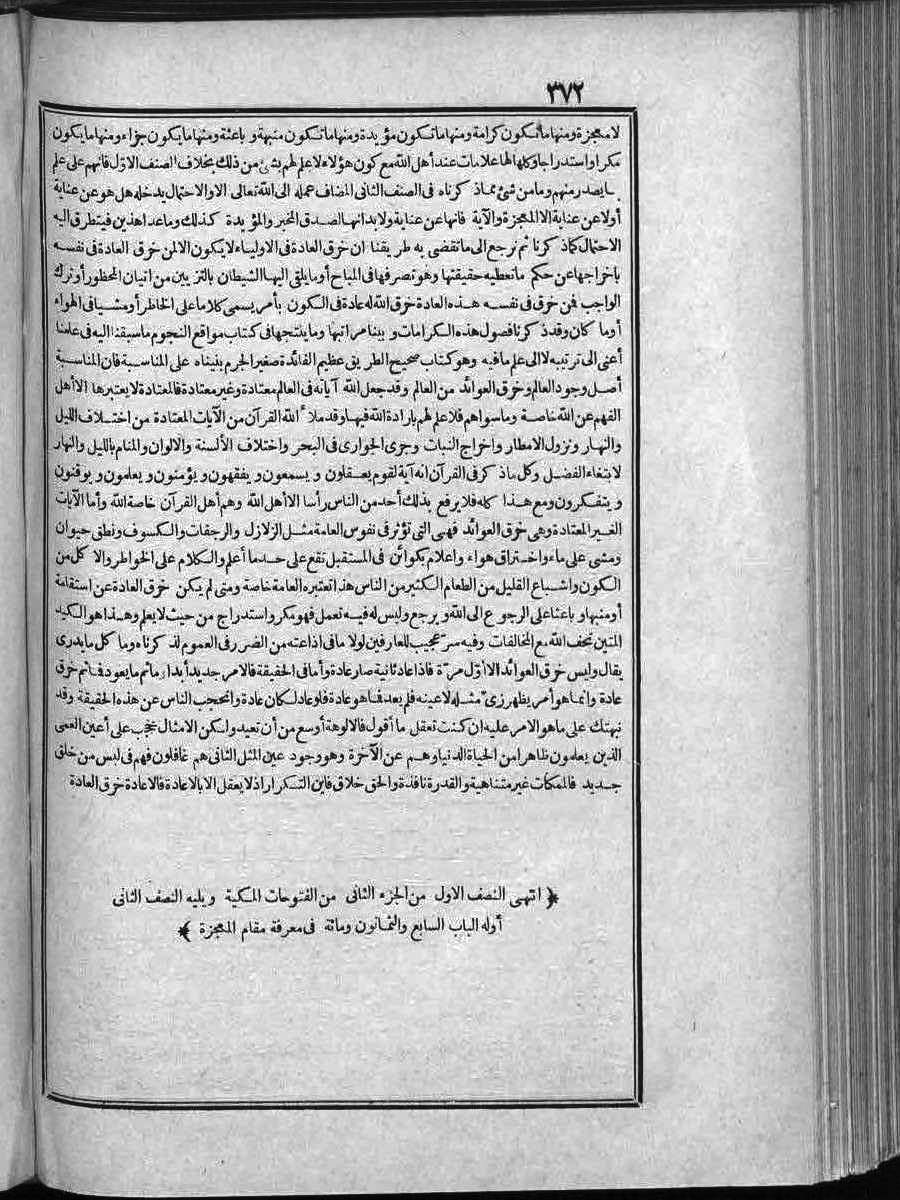 ٣٧٢
لا معجزة ومنها ما تكون كرامة ومنها ما تكون مؤيدة ومنها ما تكون منبهة وباعثة ومنها ما يكون جزاء ومنها ما يكون
مكرا واستدراجا وكلها لها علامات عند أهل الله مع كون هؤلاء لا علم لهم بشئ من ذلك بخلاف الصنف الاول فانهم على علم
بما يصدر منهم وما من شئ مما ذكرناه فى الصنف الثانى المضاف عمله الى الله تعالى الا والاحتمال يدخله هل هو عن عناية
أولا عن عناية الا المعجزة والآية فانها عن عناية ولا بد انها لصدق المخبر والمؤيدة كذلك وما عدا هذين فيتطرق اليه
الاحتمال كما ذكرنا ثم نرجع الى ما تقضى به طريقنا ان خرق العادة فى الاولياء لا يكون الا لمن خرق العادة فى نفسه
باخراجها عن حكم ما تعطيه حقيقتها وهو تصرفها فى المباح أو ما يلقى اليها الشيطان بالتزيين من اتيان المحظور أو ترك
الواجب فمن خرق فى نفسه هذه العادة خرق الله له عادة فى الكون بأمر يسمى كلاما على الخاطر أو مشيا فى الهواء
أو ما كان وقد ذكرنا فصول هذه الكرامات وبينا مراتبها وما ينتجها فى كتاب مواقع النجوم ما سبقنا اليه فى علمنا
أعنى الى ترتيبه لا الى علم ما فيه وهو كتاب صحيح الطريق عظيم الفائدة صغير الجرم بنيناه على المناسبة فان المناسبة
أصل وجود العالم وخرق العوائد من العالم وقد جعل الله آياته فى العالم معتادة وغير معتادة فالمعتادة لا يعتبرها الا أهل
الفهم عن الله خاصة وما سواهم فلا علم لهم بارادة الله فيها وقد ملأ الله القرآن من الآيات المعتادة من اختلاف الليل
والنهار ونزول الامطار واخراج النبات وجرى الجوارى فى البحر واختلاف الألسنة والالوان والمنام بالليل والنهار
لابتغاء الفضل وكل ما ذكر فى القرآن انه آية لقوم يعقلون ويسمعون ويفقهون ويؤمنون ويعلمون ويوقنون
ويتفكرون ومع هذا كله فلا يرفع بذلك أحد من الناس رأسا الا أهل الله وهم أهل القرآن خاصة الله وأما الآيات
الغير المعتادة وهى خرق العوائد فهى التى تؤثر فى نفوس العامة مثل الزلازل والرجفات والكسوف ونطق حيوان
ومشى على ماء واختراق هواء واعلام بكوائن فى المستقبل تقع على حد ما أعلم والكلام على الخواطر والاكل من
الكون واشباع القليل من الطعام الكثير من الناس هذا تعتبره العامة خاصة ومتى لم يكن خرق العادة عن استقامة
أو منبها وباعثا على الرجوع الى الله ويرجع وليس له فيه تعمل فهو مكر واستدراج من حيث لا يعلم وهذا هو الكيد
المتين تحف الله مع المخالفات وفيه سر عجيب للعارفين لولا ما فى اذاعته من الضرر فى العموم لذكرناه وما كل ما يدرى
يقال وليس خرق العوائد الا أول مرة فاذا عاد ثانية صار عادة وأما فى الحقيقة فالامر جديد أبدا وما ثم ما يعود فما ثم خرق
عادة وانما هو أمر يظهر زى مثله لا عينه فلم يعد فما هو عادة فلو عاد لكان عادة وانحجب الناس عن هذه الحقيقة وقد
نبهتك على ما هو الامر عليه ان كنت تعقل ما أقول فالالوهة أوسع من أن تعيد ولكن الامثال حجب على أعين العمى
الذين يعلمون ظاهرا من الحياة الدنيا وهم عن الآخرة وهو وجود عين المثل الثانى هم غافلون فهم فى لبس من خلق
جديد فالممكنات غير متناهية والقدرة نافذة والحق خلاق فاين التكرار اذ لا يعقل الا بالاعادة فالاعادة خرق العادة
﴿ انتهى النصف الاول من الجزء الثانى من الفتوحات المكية ويليه النصف الثانى
أوله الباب السابع والثمانون ومائة فى معرفة مقام المعجزة ﴾